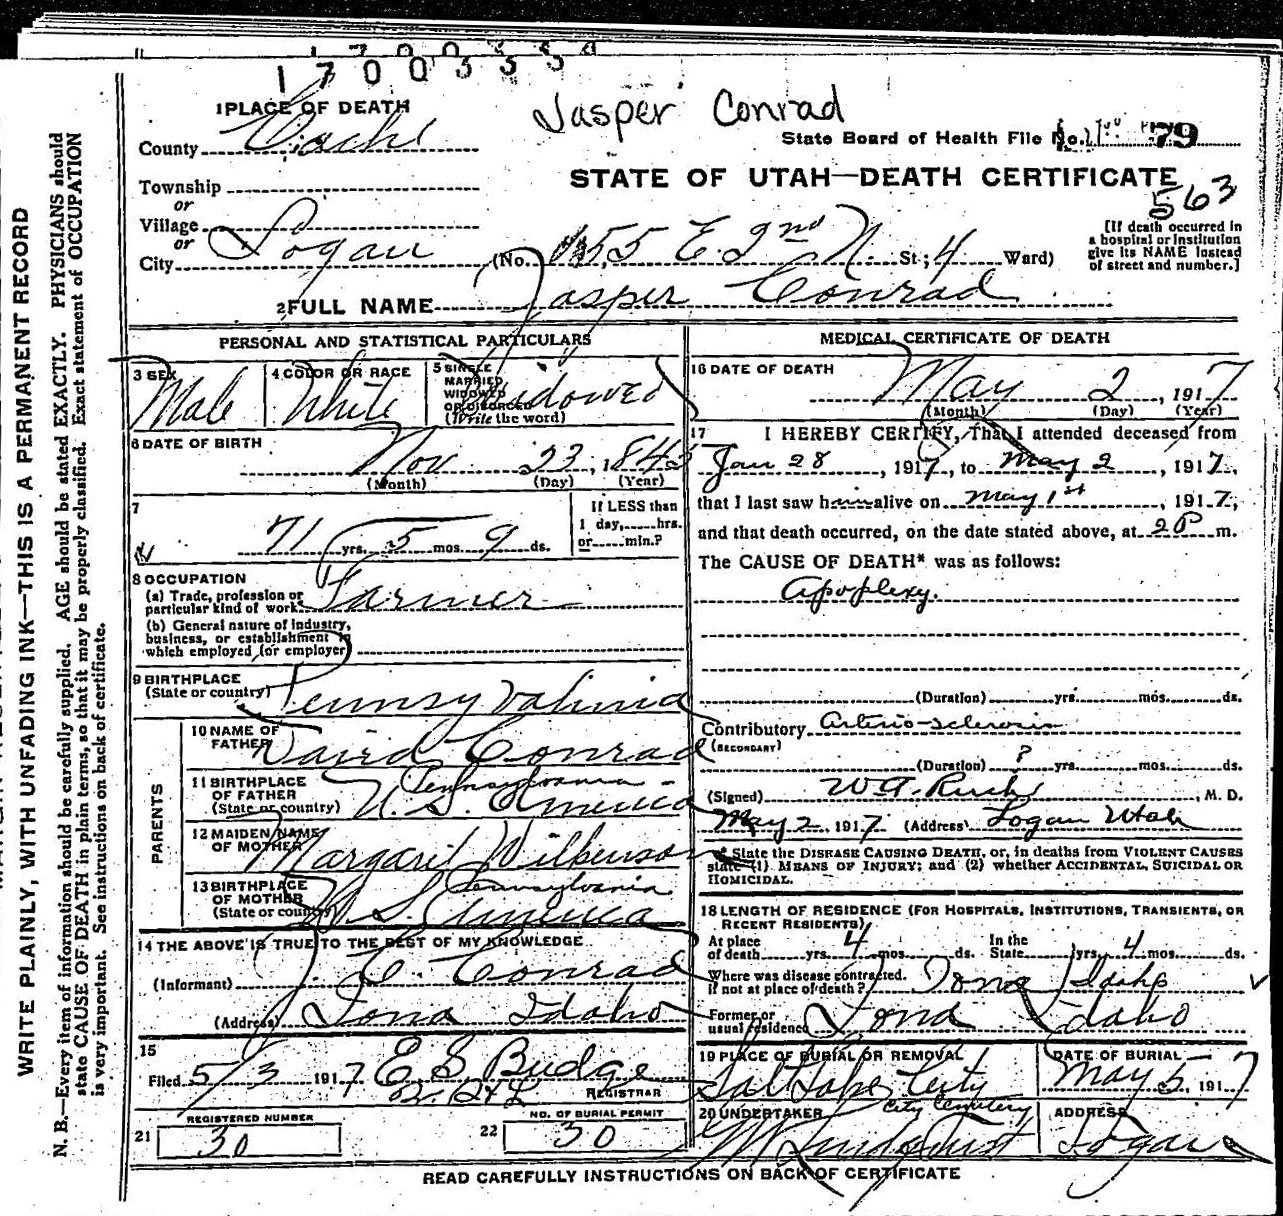 1700335
Jasper Conrad
1 PLACE OF DEATH
County Cache
State Board of Health File No. 79
STATE OF UTAH—DEATH CERTIFICATE
563
Township
or
Village
or
City Logan (No. 155 E. 2nd N. St; 4 Ward)
[If death occurred in
a hospital or institution
give its NAME instead
of street and number.]
2 FULL NAME Jasper Conrad
PERSONAL AND STATISTICAL PARTICULARS
3 SEX Male
4 COLOR OR RACE White
5 SINGLE
MARRIED
WIDOWED
OR DIVORCED
(Write the word) Widowed
6 DATE OF BIRTH
Nov 23, 1845
(Month) (Day) (Year)
7
71 yrs. 5 mos. 9 ds.
If LESS than
1 day,......hrs.
or......min.?
8 OCCUPATION
(a) Trade, profession or
particular kind of work Farmer
(b) General nature of industry,
business, or establishment in
which employed (or employer)
9 BIRTHPLACE
(State or country) Pennsyvalinia
PARENTS
10 NAME OF
FATHER David Conrad
11 BIRTHPLACE
OF FATHER
(State or country) Pennsylvania
U. S. America
12 MAIDEN NAME
OF MOTHER Margaret Wilkenson
13 BIRTHPLACE
OF MOTHER
(State or country) Pennsylvania
U. S. America
14 THE ABOVE IS TRUE TO THE BEST OF MY KNOWLEDGE
(Informant) J. E. Conrad
(Address) Iona Idaho
15
Filed 5/3 1917 E S Budge
REGISTRAR
REGISTERED NUMBER
21 30
NO. OF BURIAL PERMIT
22 30
MEDICAL CERTIFICATE OF DEATH
16 DATE OF DEATH
May 2, 1917
(Month) (Day) (Year)
17 I HEREBY CERTIFY, That I attended deceased from
Jan 28, 1917, to May 2, 1917,
that I last saw him alive on May 1st, 1917,
and that death occurred, on the date stated above, at 2 P m.
The CAUSE OF DEATH* was as follows:
Apoplexy.
(Duration) yrs. mos. ds.
Contributory Arterio-sclerosis
(SECONDARY)
(Duration) ? yrs. mos. ds.
(Signed) W. A. , M. D.
May 2, 1917 (Address) Logan Utah
* State the DISEASE CAUSING DEATH, or, in deaths from VIOLENT CAUSES
state (1) MEANS OF INJURY; and (2) whether ACCIDENTAL, SUICIDAL OR
HOMICIDAL.
18 LENGTH OF RESIDENCE (FOR HOSPITALS, INSTITUTIONS, TRANSIENTS, OR
RECENT RESIDENTS)
At place
of death yrs. 4 mos. ds. In the
State yrs. 4 mos. ds.
Where was disease contracted.
if not at place of death? Iona Idaho
Former or
usual residence Iona Idaho
19 PLACE OF BURIAL OR REMOVAL
Salt Lake City
City Cemetery
DATE OF BURIAL
May 5, 1917
20 UNDERTAKER
ADDRESS
Logan
READ CAREFULLY INSTRUCTIONS ON BACK OF CERTIFICATE
WRITE PLAINLY, WITH UNFADING INK—THIS IS A PERMANENT RECORD
N. B.—Every item of information should be carefully supplied. AGE should be stated EXACTLY. PHYSICIANS should
state CAUSE OF DEATH in plain terms, so that it may be properly classified. Exact statement of OCCUPATION
is very important. See instructions on back of certificate.